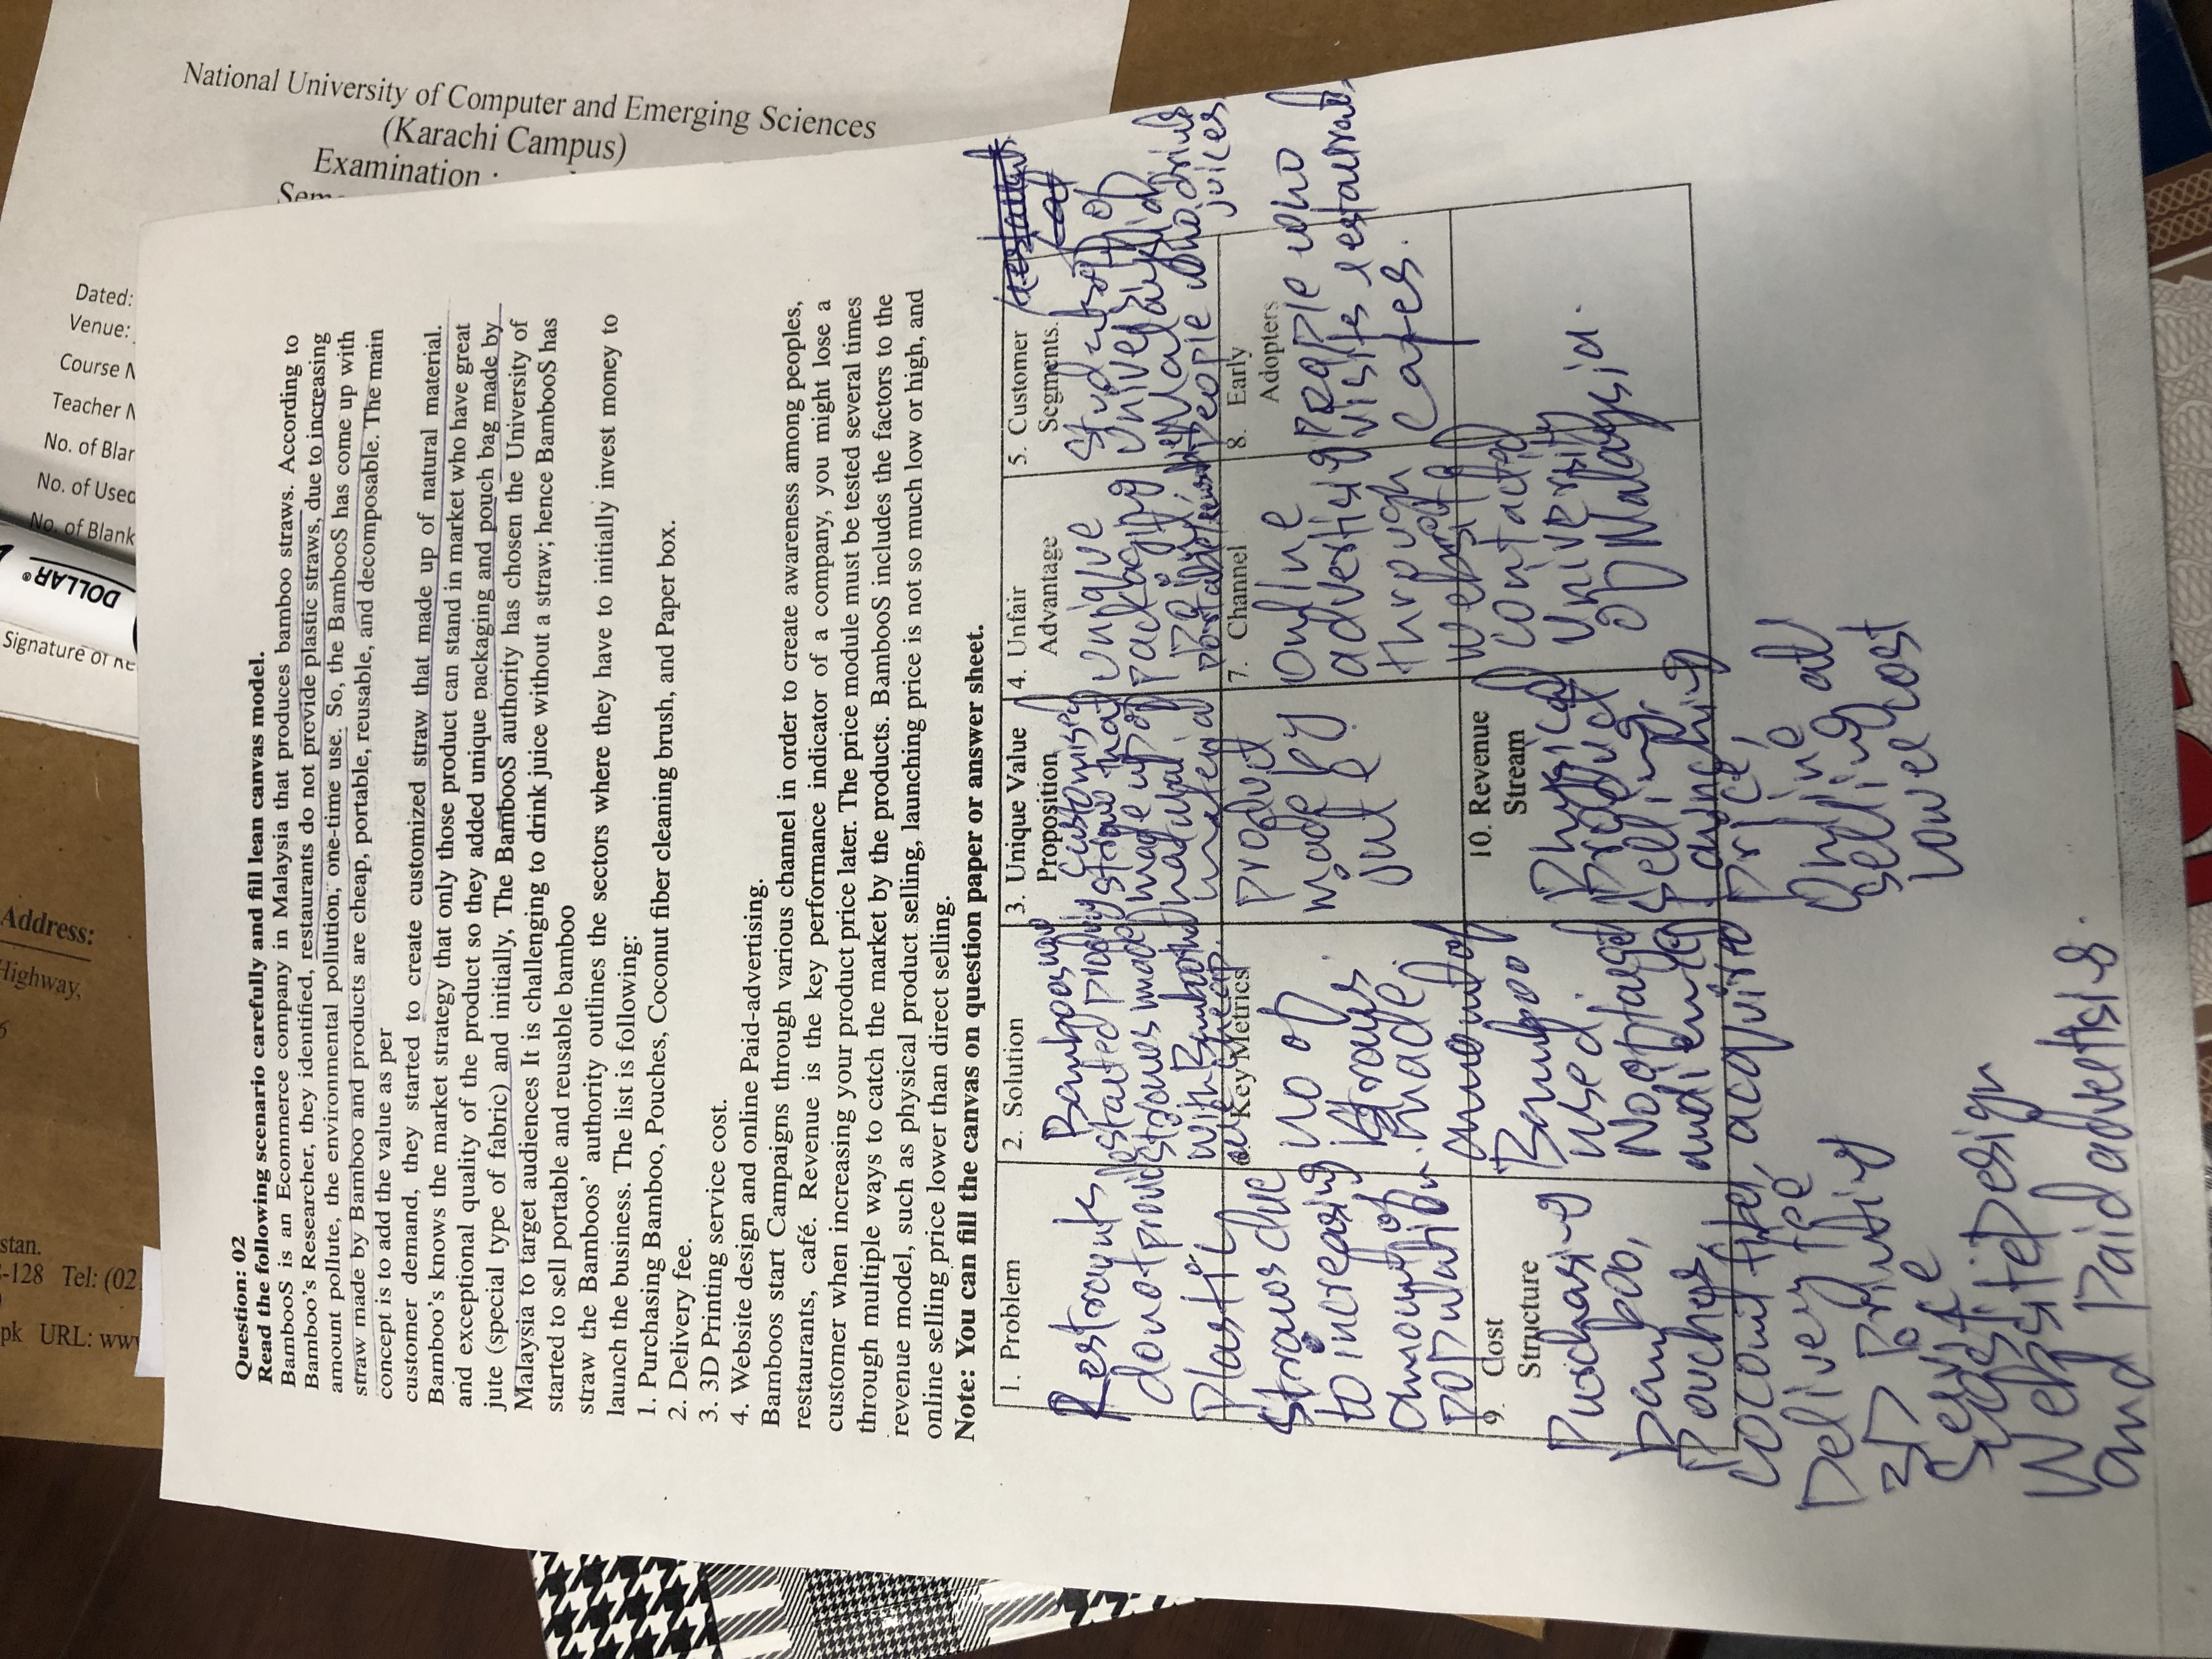 stan.
-128 Tel: (02
pk URL: ww
Address:
Highway,
6
Signature or Re
DOLLAR®
No. of Blank
No. of Used
No. of Blar
Teacher N
Course N
Venue:
Dated:
National University of Computer and Emerging Sciences
(Karachi Campus)
Examination
Sem
Question: 02
Read the following scenario carefully and fill lean canvas model.
BambooS is an Ecommerce company in Malaysia that produces bamboo straws. According to
Bamboo's Researcher, they identified, restaurants do not provide plastic straws, due to increasing
amount pollute, the environmental pollution, one-time use. So, the BambooS has come up with
straw made by Bamboo and products are cheap, portable, reusable, and decomposable. The main
concept is to add the value as per
customer demand, they started to create customized straw that made up of natural material.
Bamboo's knows the market strategy that only those product can stand in market who have great
and exceptional quality of the product so they added unique packaging and pouch bag made by
jute (special type of fabric) and initially, The BambooS authority has chosen the University of
Malaysia to target audiences It is challenging to drink juice without a straw; hence BambooS has
started to sell portable and reusable bamboo
straw the Bamboos' authority outlines the sectors where they have to initially invest money to
launch the business. The list is following:
1. Purchasing Bamboo, Pouches, Coconut fiber cleaning brush, and Paper box.
2. Delivery fee.
3. 3D Printing service cost.
4. Website design and online Paid-advertising.
Bamboos start Campaigns through various channel in order to create awareness among peoples,
restaurants, café. Revenue is the key performance indicator of a company, you might lose a
customer when increasing your product price later. The price module must be tested several times
through multiple ways to catch the market by the products. BambooS includes the factors to the
revenue model, such as physical product selling, launching price is not so much low or high, and
online selling price lower than direct selling.
Note: You can fill the canvas on question paper or answer sheet.
1. Problem
Restraunts
do not provid
Plastic
straws due
to increasing
amount of
population.
2. Solution
Bamboos
started
straws made
with Bamboo
are cheap.
3. Unique Value
Proposition
customised
straw that
made up of
natural
material
product
made by
jute.
4. Unfair
Advantage
unique
packaging
portable
5. Customer
Segments.
Students of
University of
Malaysia
People who drink
juices
6. Key Metrics
no of
straws
made.
amount of
Bamboo
used.
No of target
audience
acquired
7. Channel
Online
advertising
through
website
contacted
University
of Malaysia.
8. Early
Adopters
People who
visits restaurants
cafes.
9. Cost
Structure
Purchasing
bamboo,
Pouches,
coconut fiber,
Delivery fee
3D Printing
Service
cost.
Website Design
and Paid advertising.
10. Revenue
Stream
Physical
Product
selling,
Launching
price,
Online
selling at
Lower cost